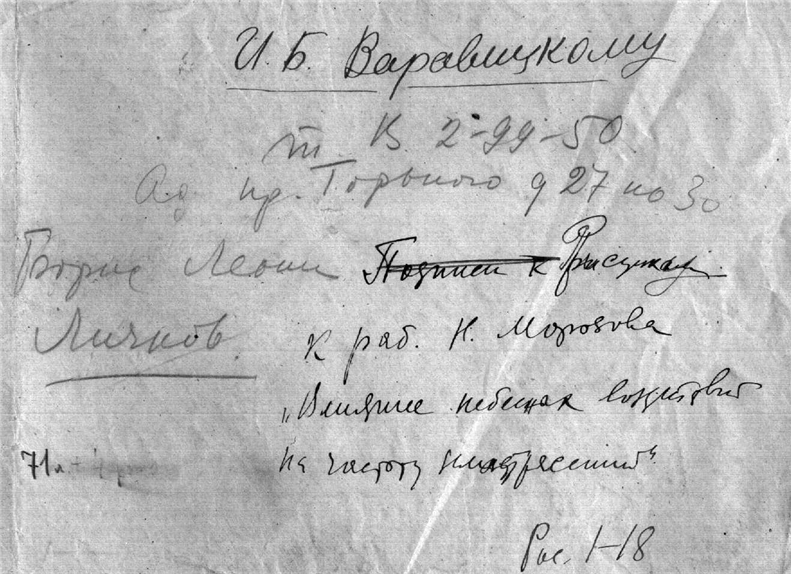 И. Б. Варавицкому
т. В 2-99-50
Ад пр. Горького д 27 кв 30
Борис Леони
Личков
Подписи к Рисункам
к раб. Н. Морозова
„Влияние небесных воздействий
на частоту землетрясений“
71л
Рис. 1-18